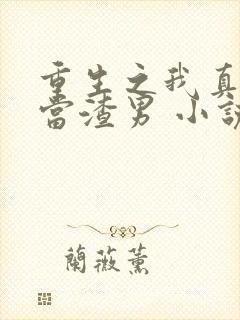 重生之我真
當渣男 小說
蘭薇薰